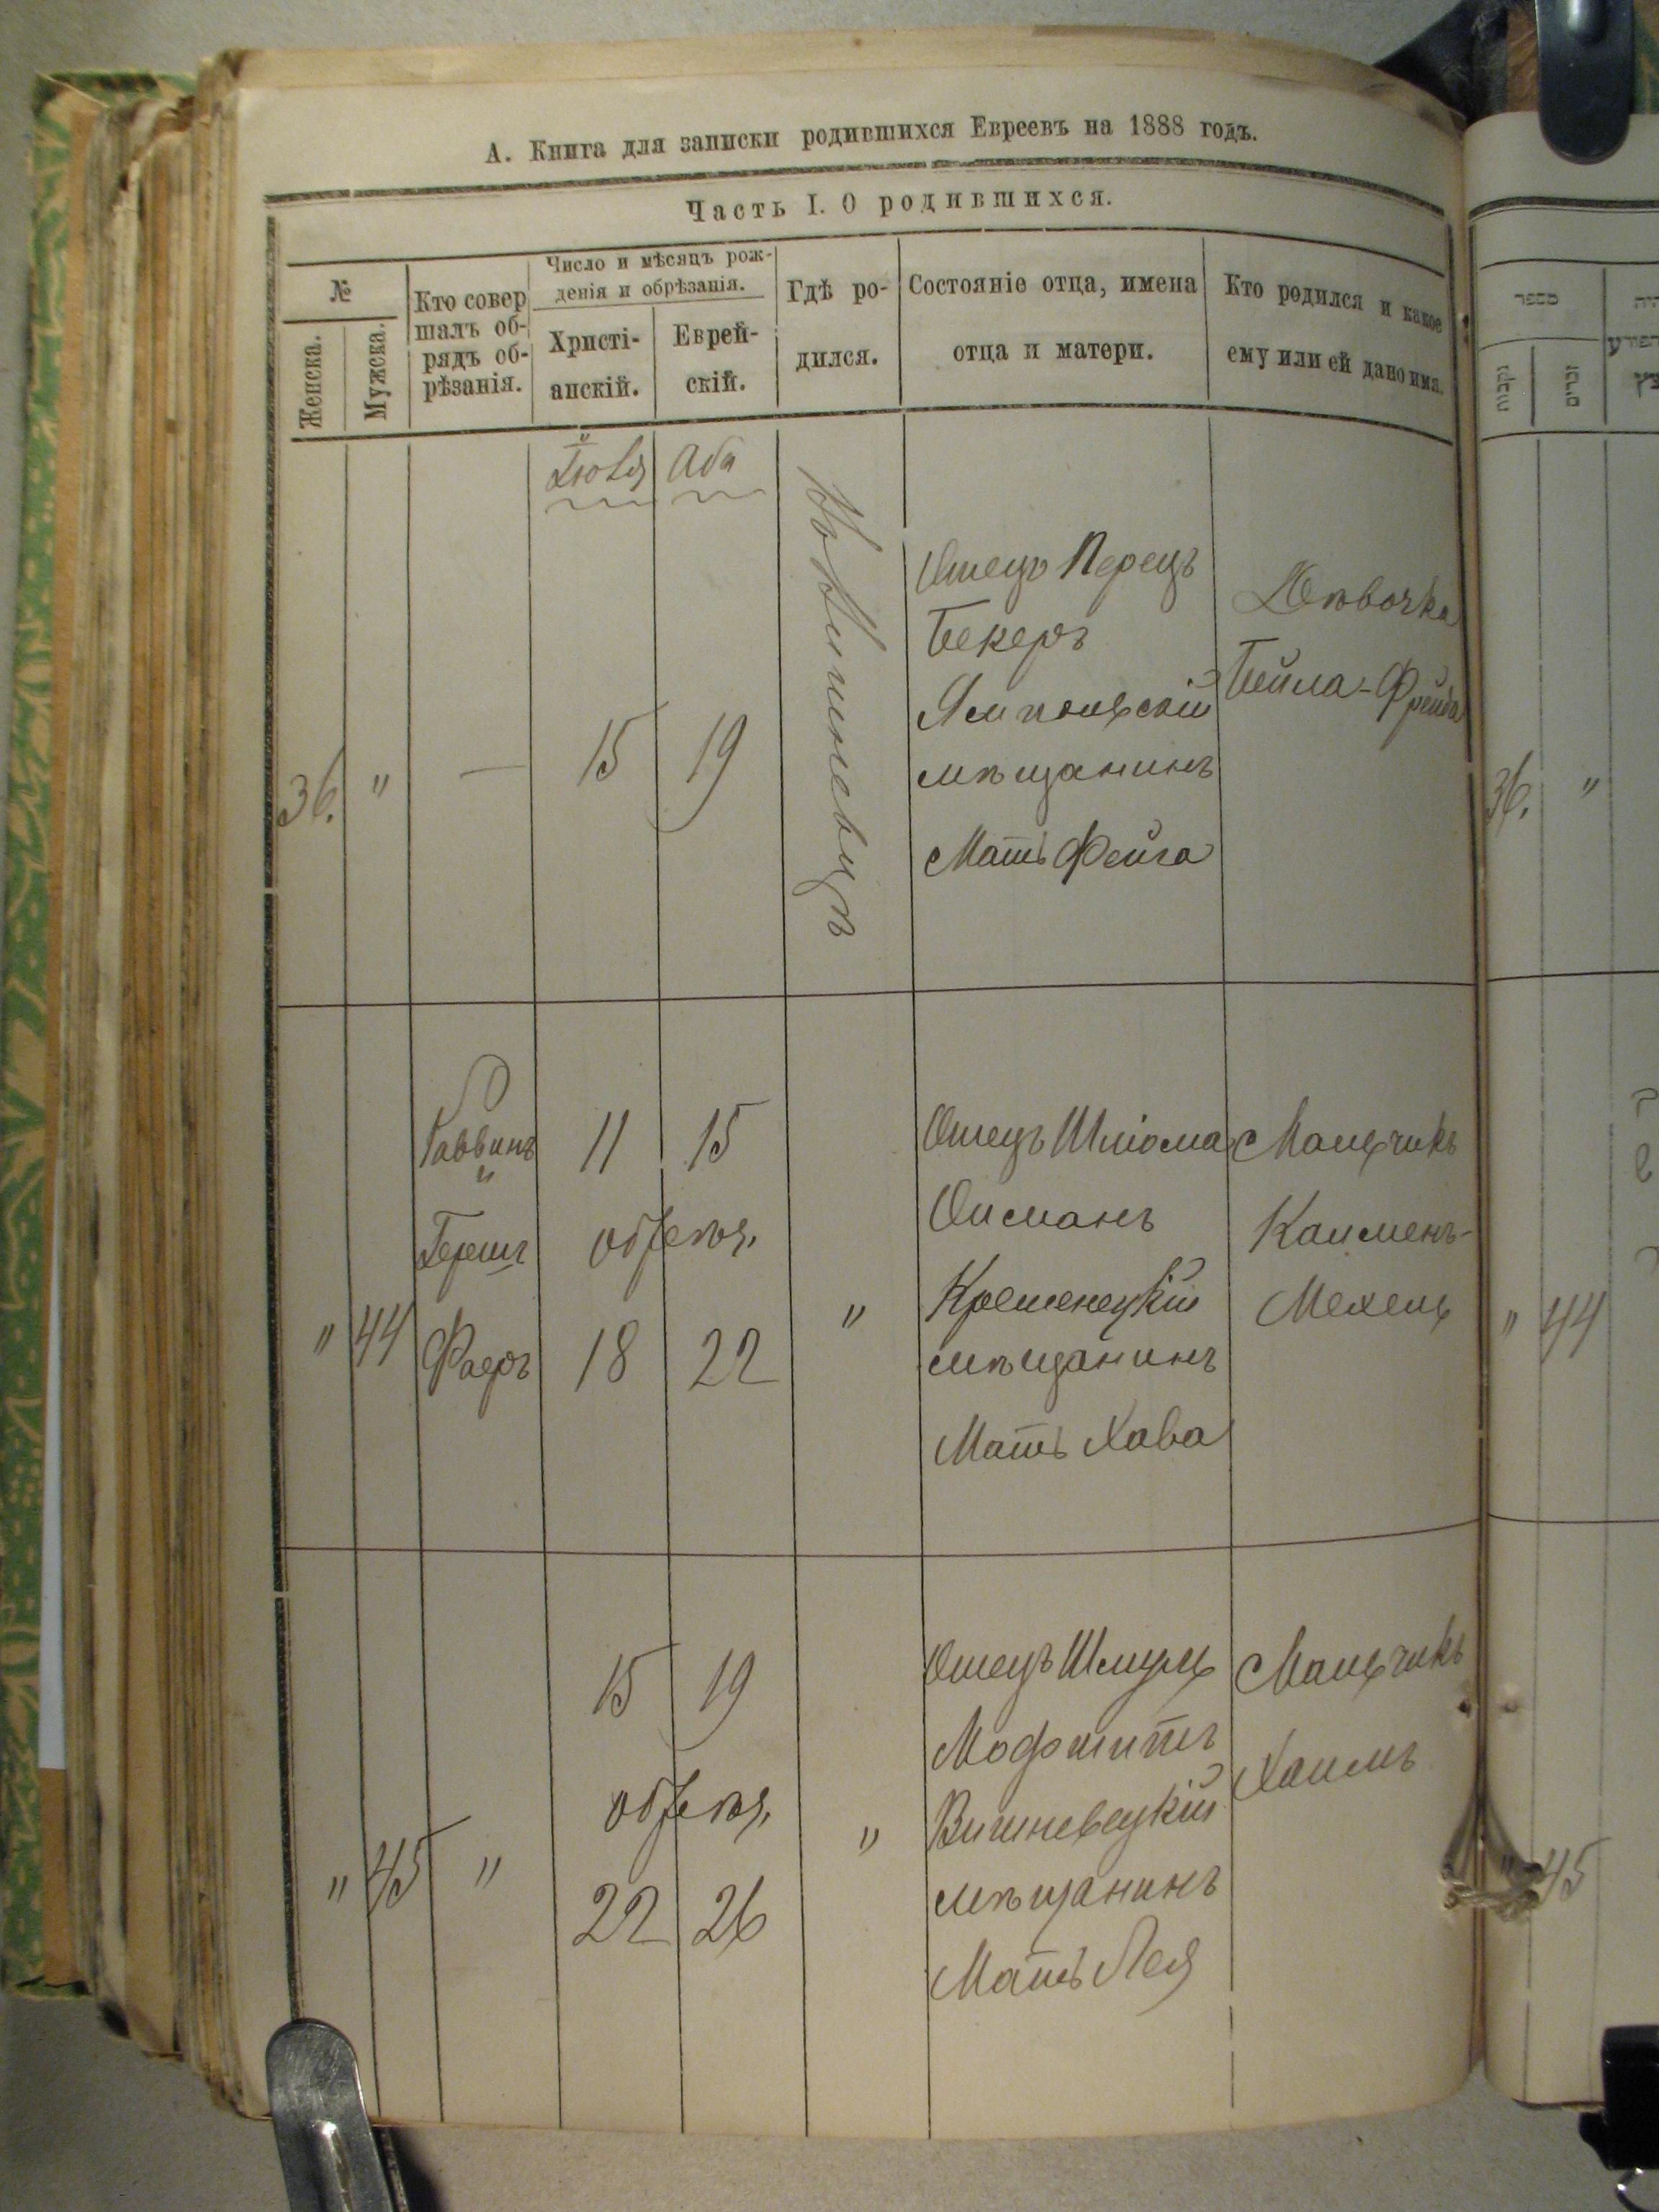 А. Книга для записки родившихся Евреевъ на 1888 годъ.
Часть I. О родившихся.
№
Женска.
Мужска.
Кто совер
шалъ об-
рядъ об-
рѣзанія.
Число и мѣсяцъ рож-
денія и обрѣзанія.
Христі-
анскій.
Еврей-
скій.
Гдѣ ро-
дился.
Состояніе отца, имена
отца и матери.
Кто родился и какое
ему или ей дано имя.
Іюля
Аба
36.
"
—
15
19
Отецъ Перецъ
Бекеръ
Ямпольскій
мѣщанинъ
Мать Фейга
Дѣвочка
Бейла-Фрейда
"
44
Раввинъ
и
Герш
Фаеръ
11
15
обрѣз.
18
22
"
Отецъ Шліома
Ойсманъ
Кременецкій
мѣщанинъ
Мать Хава
Мальчикъ
Калменъ-
Мехель
"
45
"
15
19
обрѣз.
22
26
"
Отецъ Шмуль
Мофшитъ
Вишневецкій
мѣщанинъ
Мать Лея
Мальчикъ
Хаимъ
מספר
נקבות
זכרים
36.
"
"
44
"
45